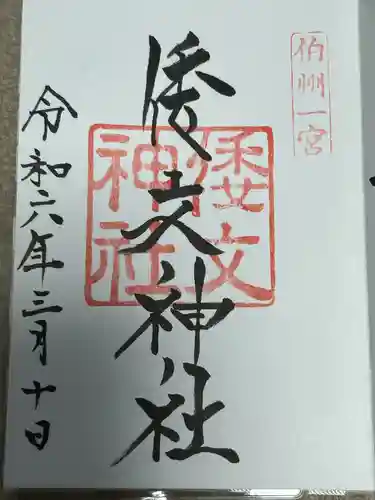 伯州一宮
倭文神社
倭文神社
令和六年三月十日